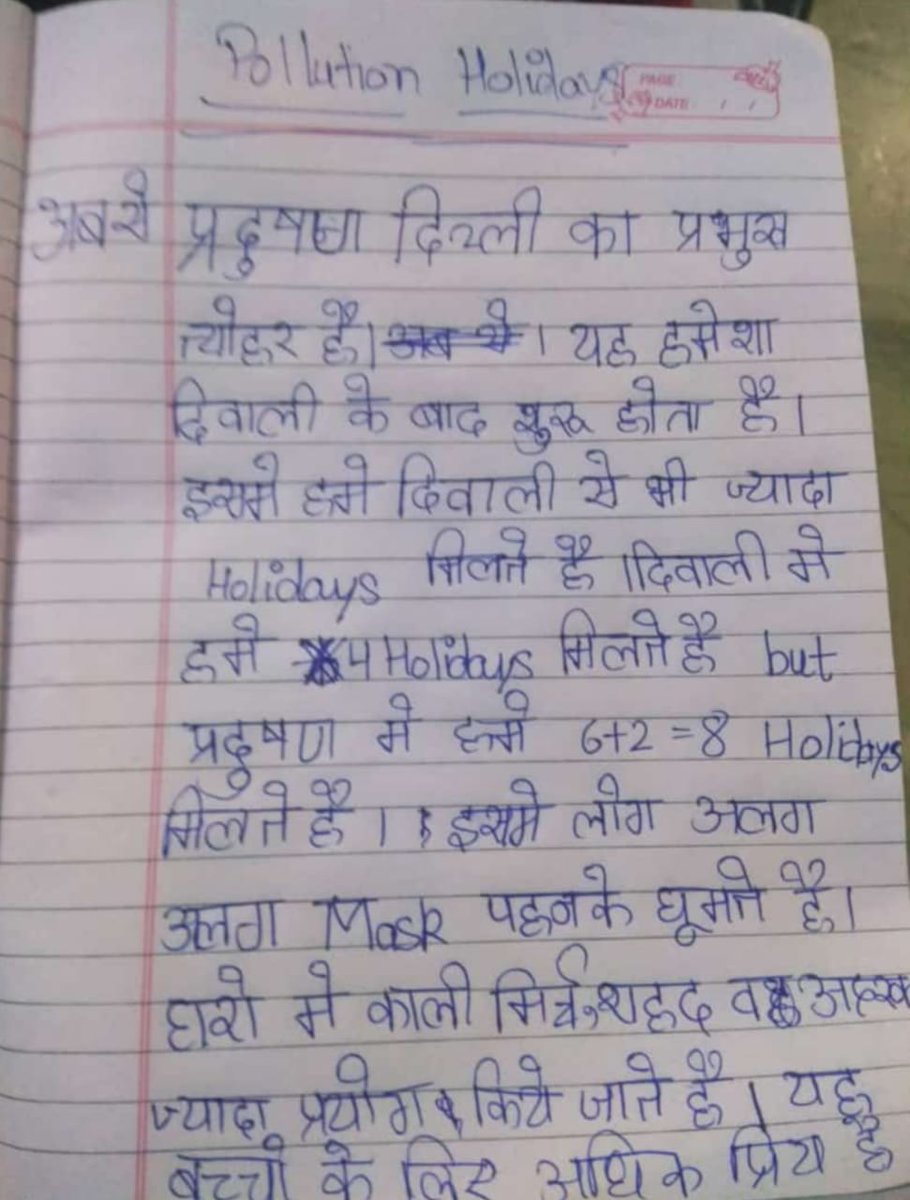 Pollution Holidays
PAGE
DATE / /
अब से प्रदुषण दिल्ली का प्रमुख
त्योहर है। अब से । यह हमेशा
दिवाली के बाद शुरू होता है।
इसमे हमे दिवाली से भी ज्यादा
Holidays मिलते है ।दिवाली मे
हमे 4 Holidays मिलते है but
प्रदुषण मे हमे 6+2=8 Holidays
मिलते है । इसमे लोग अलग
अलग Mask पहनके घूमते है।
घरो मे काली मिर्च, शहद व अदरक
ज्यादा प्रयोग किये जाते है । यह
बच्चो के लिए अधिक प्रिय है